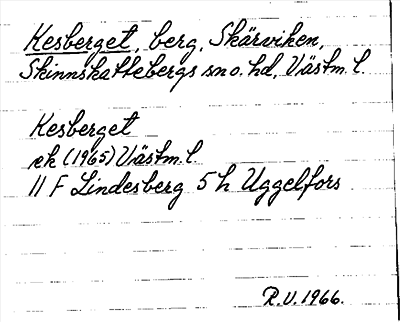 Kesberget, berg, Skärviken,
Skinnskattebergs sn o. hd, Västm. l.
Kesberget
ek (1965) Västm. l.
11 F Lindesberg 5 h Uggelfors
R.U. 1966.